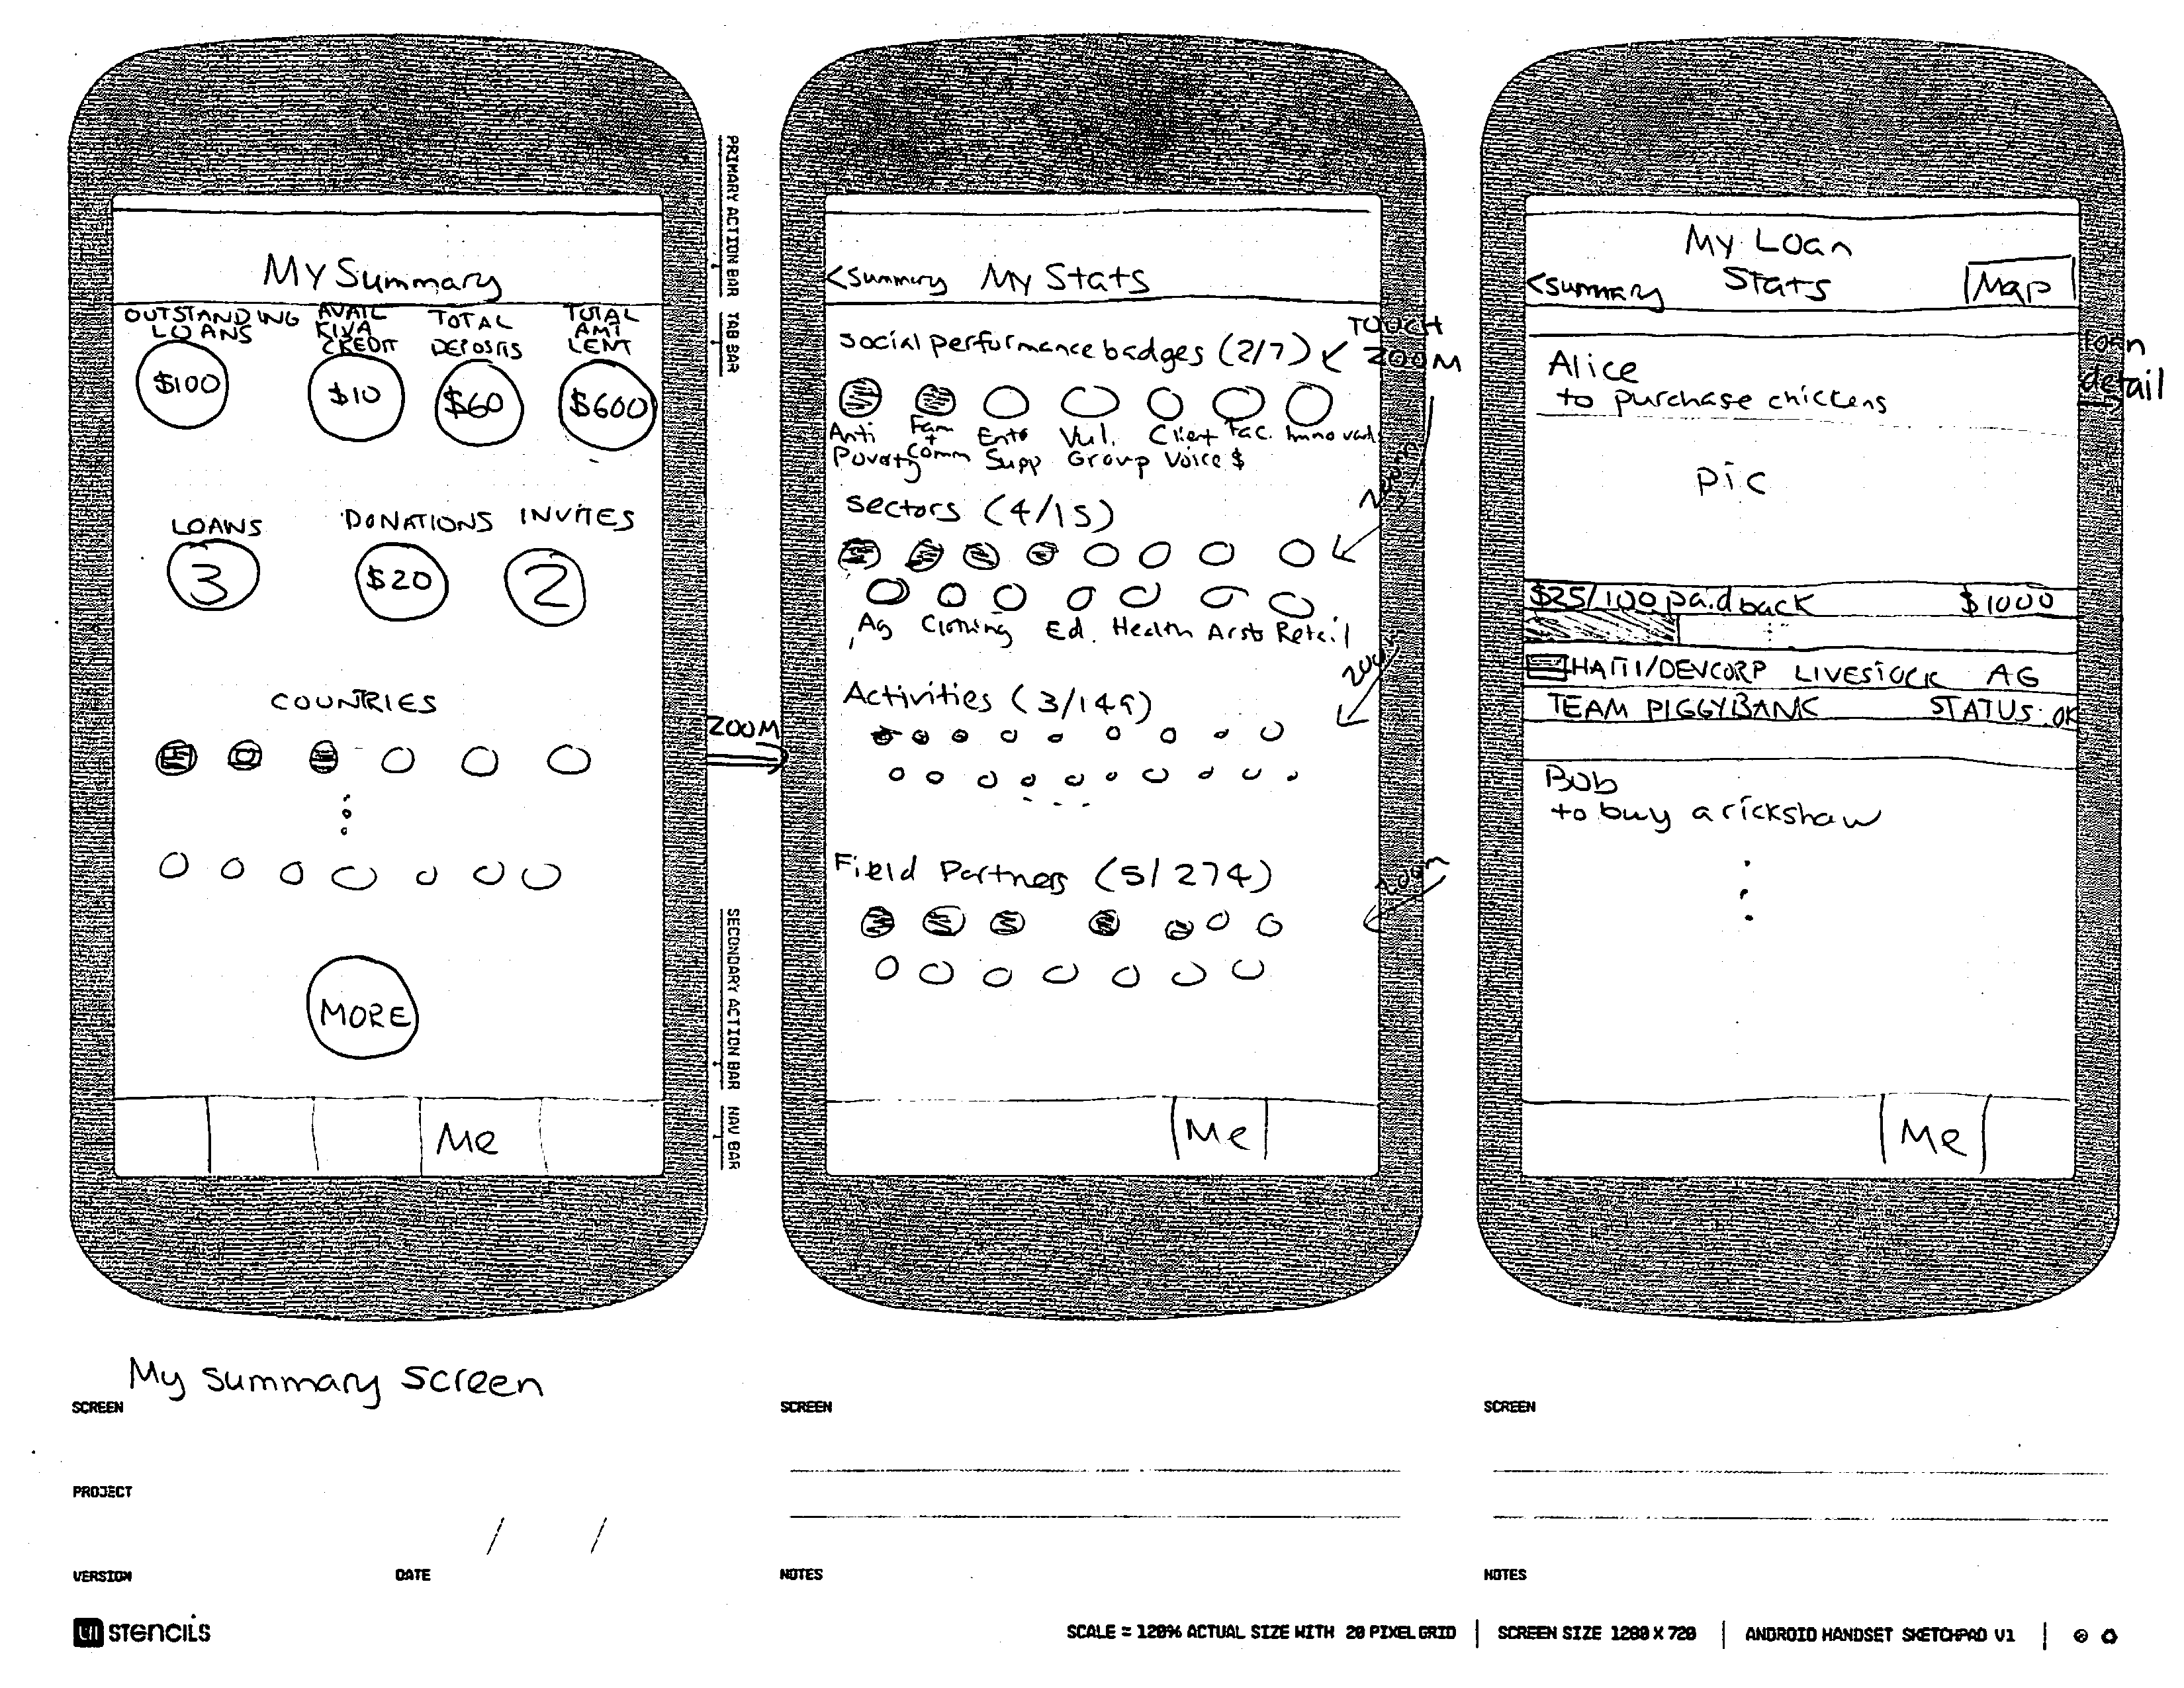 My Summary
OUTSTANDING LOANS
AVAIL KIVA CREDIT
TOTAL DEPOSITS
TOTAL AMT LENT
$100
$10
$60
$600
LOANS
DONATIONS
INVITES
3
$20
2
COUNTRIES
MORE
Me
PRIMARY ACTION BAR
TAB BAR
ZOOM
SECONDARY ACTION BAR
NAV BAR
<Summary My Stats
social performance badges (2/7)
TOUCH
ZOOM
Anti Poverty
Fam + Comm
Entr Supp
Vul. Group
Client Voice
Fac. $
Innovat
zoom
sectors (4/15)
Ag Clothing Ed. Health Arts Retail
zoom
Activities (3/149)
Field Partners (5/274)
zoom
Me
My Loan
Stats
<Summary
Map
loan
detail
Alice
to purchase chickens
pic
$25/100 paid back $1000
HAITI/DEVCORP LIVESTOCK AG
TEAM PIGGYBANK STATUS: OK
Bob
to buy a rickshaw
Me
My summary screen
SCREEN
PROJECT
/ /
VERSION
DATE
SCREEN
NOTES
SCREEN
NOTES
UI STENCILS
SCALE = 120% ACTUAL SIZE WITH 20 PIXEL GRID | SCREEN SIZE 1280 X 720 | ANDROID HANDSET SKETCHPAD V1 |